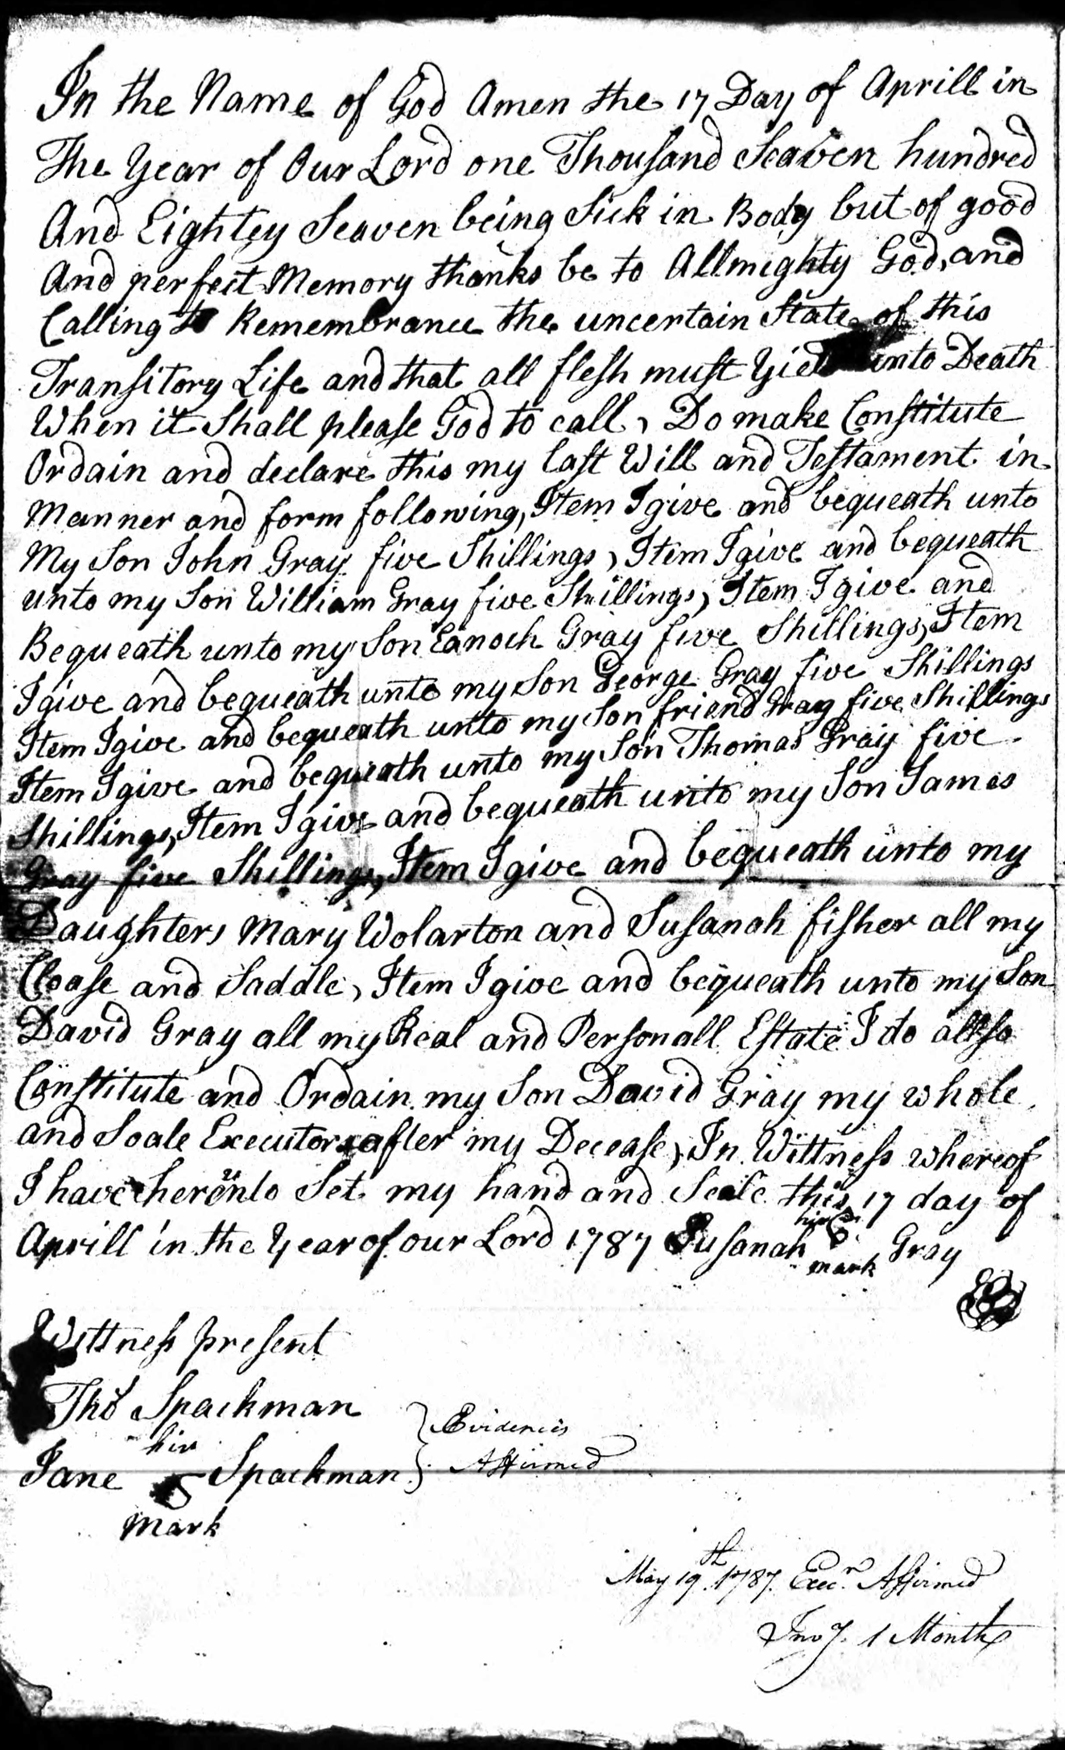 In the Name of God Amen the 17 Day of Aprill in
The Year of Our Lord one Thousand Seaven hundred
And Eightey Seaven being Sick in Body but of good
And perfect Memory thanks be to Allmighty God, and
Calling to Remembrance the uncertain State of this
Transitory Life and that all flesh must Yield unto Death
When it Shall please God to call, Do make Constitute
Ordain and declare this my last Will and Testament in
Manner and form following, Item I give and bequeath unto
My Son John Gray five Shillings, Item I give and bequeath
unto my Son William Gray five Shillings, Item I give and
Bequeath unto my Son Eanoch Gray five Shillings, Item
I give and bequeath unto my Son George Gray five Shillings
Item I give and bequeath unto my Son friend Gray five Shillings
Item I give and bequeath unto my Son Thomas Gray five
Shillings, Item I give and bequeath unto my Son James
Gray five Shillings, Item I give and bequeath unto my
Daughters Mary Wolarton and Susanah fisher all my
Cloase and Saddle, Item I give and bequeath unto my Son
David Gray all my Real and Personall Estate I do allso
Constitute and Ordain my Son David Gray my whole
and Soale Executor after my Decease, In Wittness whereof
I have hereunto Set my hand and Seale this 17 day of
Aprill in the Year of our Lord 1787 Susanah her mark Gray
Wittness present
Thos Spackman
Jane his mark Spackman
Evidences
Affirmed
May 19th 1787. Execr. Affirmed
Invy. 1 Month